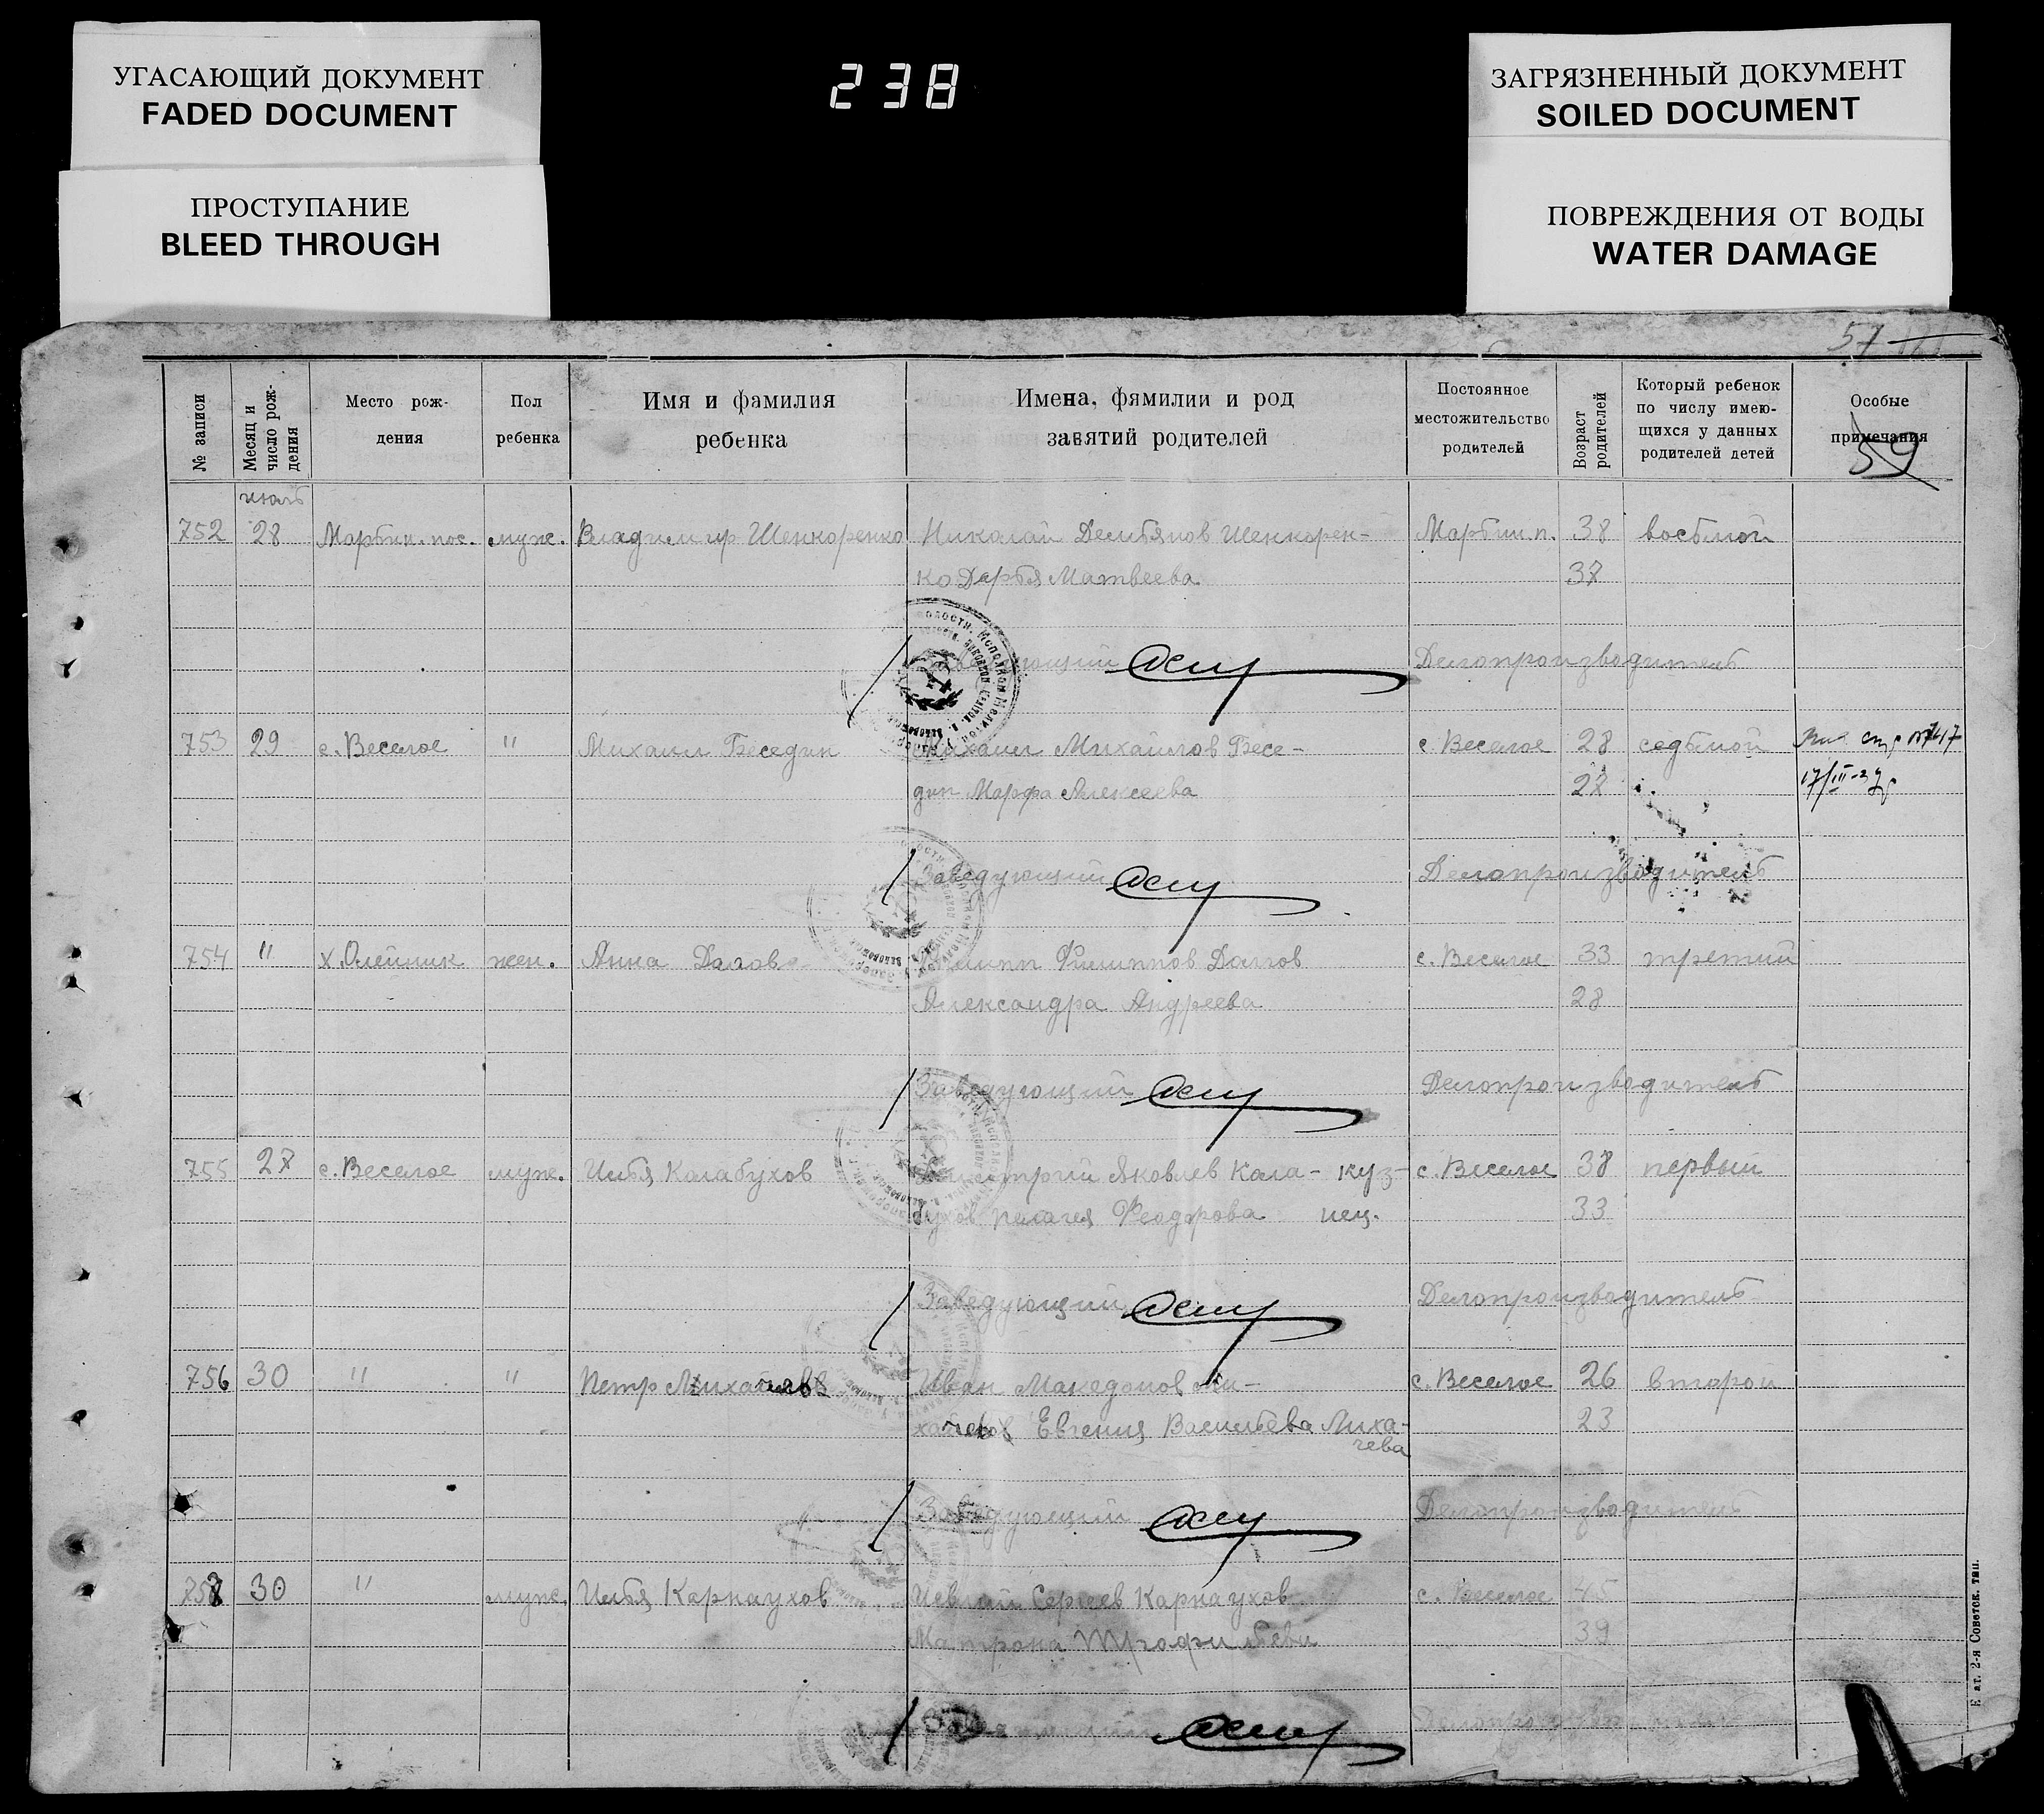 УГАСАЮЩИЙ ДОКУМЕНТ
FADED DOCUMENT
ПРОСТУПАНИЕ
BLEED THROUGH
238
ЗАГРЯЗНЕННЫЙ ДОКУМЕНТ
SOILED DOCUMENT
ПОВРЕЖДЕНИЯ ОТ ВОДЫ
WATER DAMAGE
57
№ записи
Месяц и число рож-дения
Место рож-
дения
Пол
ребенка
Имя и фамилия
ребенка
Имена, фамилии и род
занятий родителей
Постоянное
местожительство
родителей
Возраст родителей
Который ребенок
по числу имею-
щихся у данных
родителей детей
Особые
примечания
59
июль
752 28 Марьин. пос. муж. Владимир Шенкоренко Николай Демьянов Шенкорен- Марьин. п. 38 восьмой
ко Дарья Матвеева 37
Заведующий Делопроизводитель
753 29 с. Веселое " Михаил Беседин Михаил Михайлов Бесе- с. Веселое 28 седьмой
дин Марфа Алексеева 27 17/III-37г
Заведующий Делопроизводитель
754 " х. Олейник жен. Анна Филипп Филиппов Долгов с. Веселое 33 третий
Александра Андреева 28
Заведующий Делопроизводитель
755 27 с. Веселое муж. Илья Калабухов Дмитрий Яковлев Кала- куз- с. Веселое 38 первый
бухов Пелагея Феодорова нец. 33
Заведующий Делопроизводитель
756 30 " " Петр Иван Македонов с. Веселое 26 второй
Евгения Васильева Лиха- 23
чева
Заведующий Делопроизводитель
757 30 " муж. Илья Карнаухов Сергеев Карнаухов с. Веселое 45
Матрона Трофильева 39
Заведующий Делопроизводитель
2-я Советск. тип.